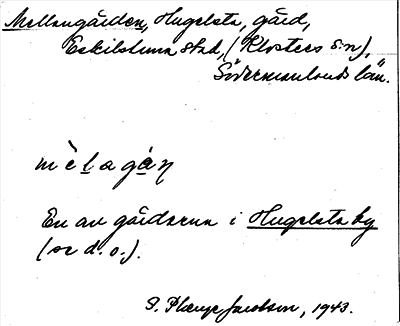 Mellangården, Hugelsta, gård,
Eskilstuna stad, (Klosters s:n),
Södermanlands län.
mèlagàṇ
En av gårdarna i Hugelsta by
(se d. o.).
S. Jacobson, 1943.